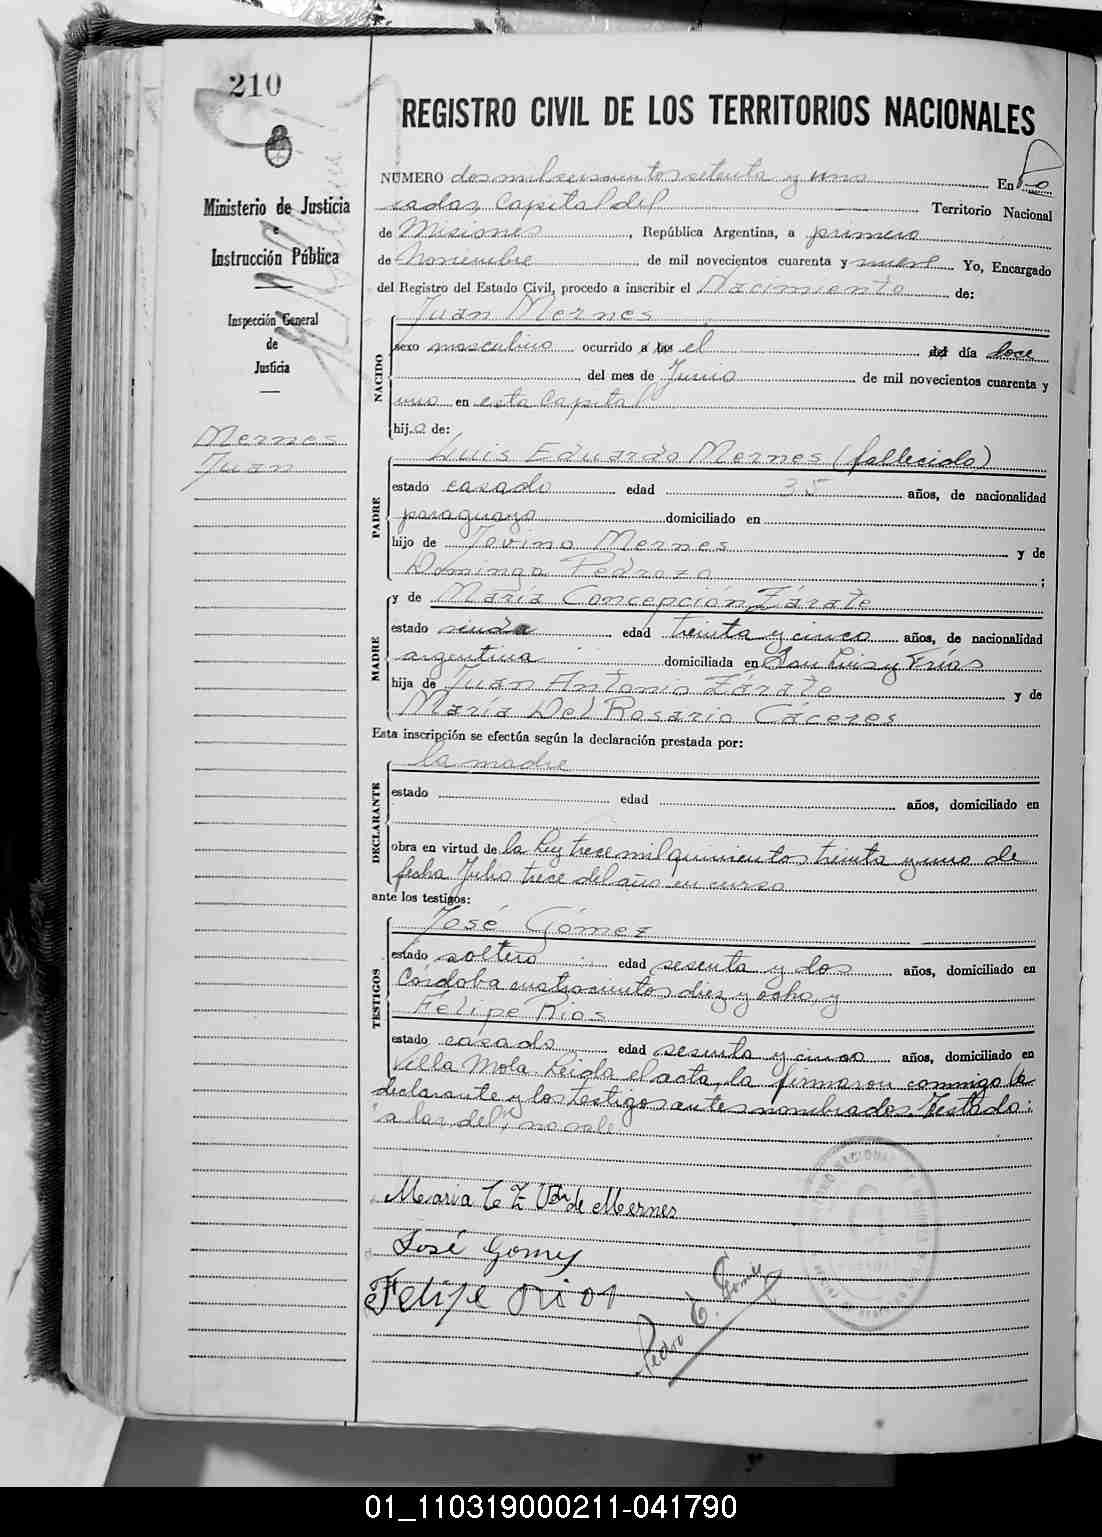 210
REGISTRO CIVIL DE LOS TERRITORIOS NACIONALES
Ministerio de Justicia
e
Instrucción Pública
Inspección General
de
Justicia
Mernes
Juan
NÚMERO dos mil seiscientos setenta y uno En Po
sadas, Capital del Territorio Nacional
de Misiones, República Argentina, a primero
de Noviembre de mil novecientos cuarenta y nueve Yo, Encargado
del Registro del Estado Civil, procedo a inscribir el Nacimiento de:
Juan Mernes
NACIDO
sexo masculino ocurrido a las el del día doce
del mes de Junio de mil novecientos cuarenta y
uno en esta Capital
hijo de:
Luis Eduardo Mernes (fallecido)
PADRE
estado casado edad 35 años, de nacionalidad
paraguayo domiciliado en
hijo de Jovino Mernes y de
Dominga Pedrozo ;
y de María Concepción Zárate
MADRE
estado viuda edad treinta y cinco años, de nacionalidad
argentina domiciliada en San Luis y Frías
hija de Juan Antonio Zárate y de
María Del Rosario Cáceres
Esta inscripción se efectúa según la declaración prestada por:
la madre
DECLARANTE
estado edad años, domiciliado en
obra en virtud de la Ley trece mil quinientos treinta y uno de
fecha Julio trece del año en curso
ante los testigos:
José Gómez
TESTIGOS
estado soltero edad sesenta y dos años, domiciliado en
Córdoba cuatrocientos diez y ocho y
Felipe Rios
estado casado edad sesenta y cinco años, domiciliado en
Villa Mola. Leida el acta, la firmaron conmigo la
declarante y los testigos antes nombrados. Testado:
"a las del", no vale.
Maria C Z Vda de Mernes
José Gomez
Felipe rios
Pedro E.
01_110319000211-041790